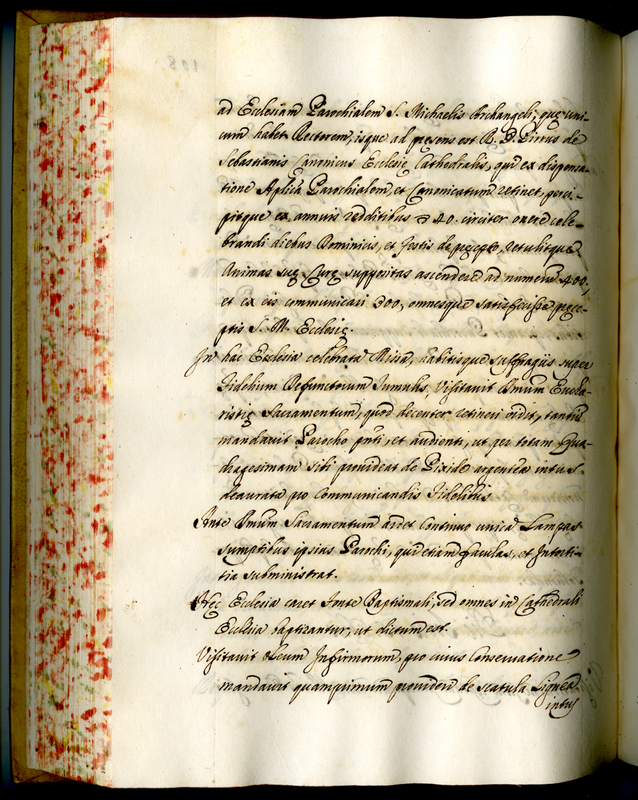 ad Ecclesiam Parochialem S. Michaelis Archangeli, quę uni-
cum habet Rectorem, isque ad pręsens est R. D. Pirrus de
Sebastianis Canonicus Ecclesię Cathedralis, qui ex dispensa-
tione Aplica Parochialem, et Canonicatum retinet, perci-
pitque ex annuis redditibus 40. circiter onere cele-
brandi diebus Dominicis, et festis de pręcepto, retulitque
Animas suę Curę suppositas ascendere ad numerū 400,
et ex eis communicari 300, omnesque satisfecisse pręce-
ptis S. M. Ecclesię.
In hac Ecclesia celebrata Missa, habitisque suffragijs super
Fidelium Defunctorum Tumulis, Visitavit Smum Eucha-
ristię Sacramentum, quod decenter retineri vidit, tantū
mandavit Parocho pnti, et audienti, ut per totam Qua-
dragesimam sibi provideat de Pixide argentea intus
deaurata pro communicandis Fidelibus
Ante Smum Sacramentum ardet continuo unica Lampas
sumptibus ipsius Parochi, qui etiam faculas, et Intorti-
tia subministrat.
Hęc Ecclesia caret Fonte Baptismali, sed omnes in Cathedrali
Ecclesia baptizantur, ut dictum est.
Visitavit Oleum Infirmorum, pro cuius conservatione
mandavit quamprimum provideri de scatula lignea
intus